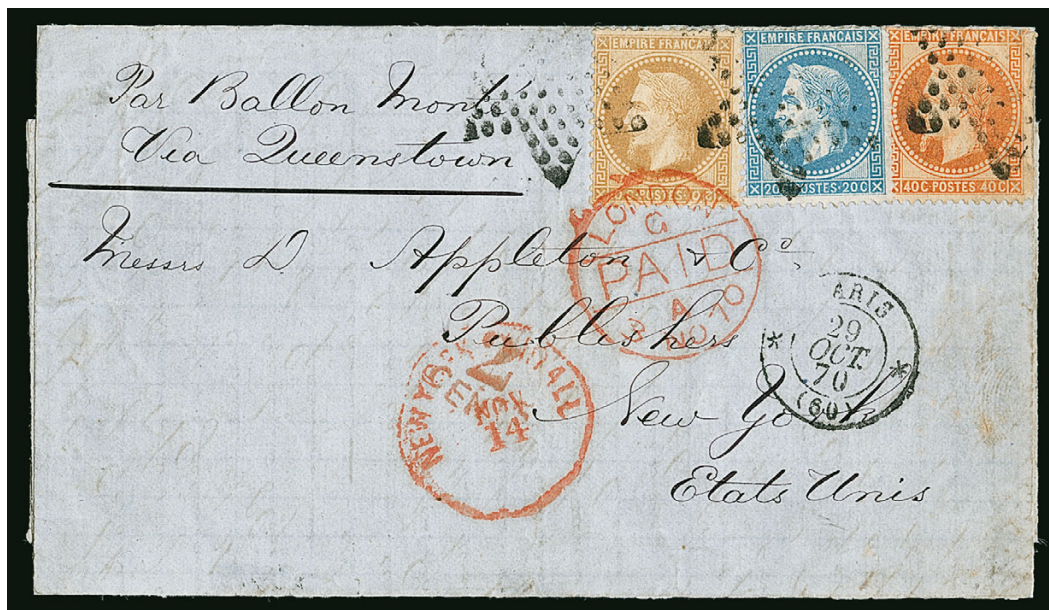 Par Ballon Monté
Via Queenstown
EMPIRE FRANÇAIS
EMPIRE FRANÇAIS
20C POSTES 20C
EMPIRE FRANÇAIS
40C POSTES 40C
Messrs D. Appleton & Co
Publishers
New York
Etats Unis
LONDON
G
PAID
A
3 NO 70
29
OCT.
70
(60)
NEW YORK PAID ALL
NOV
14